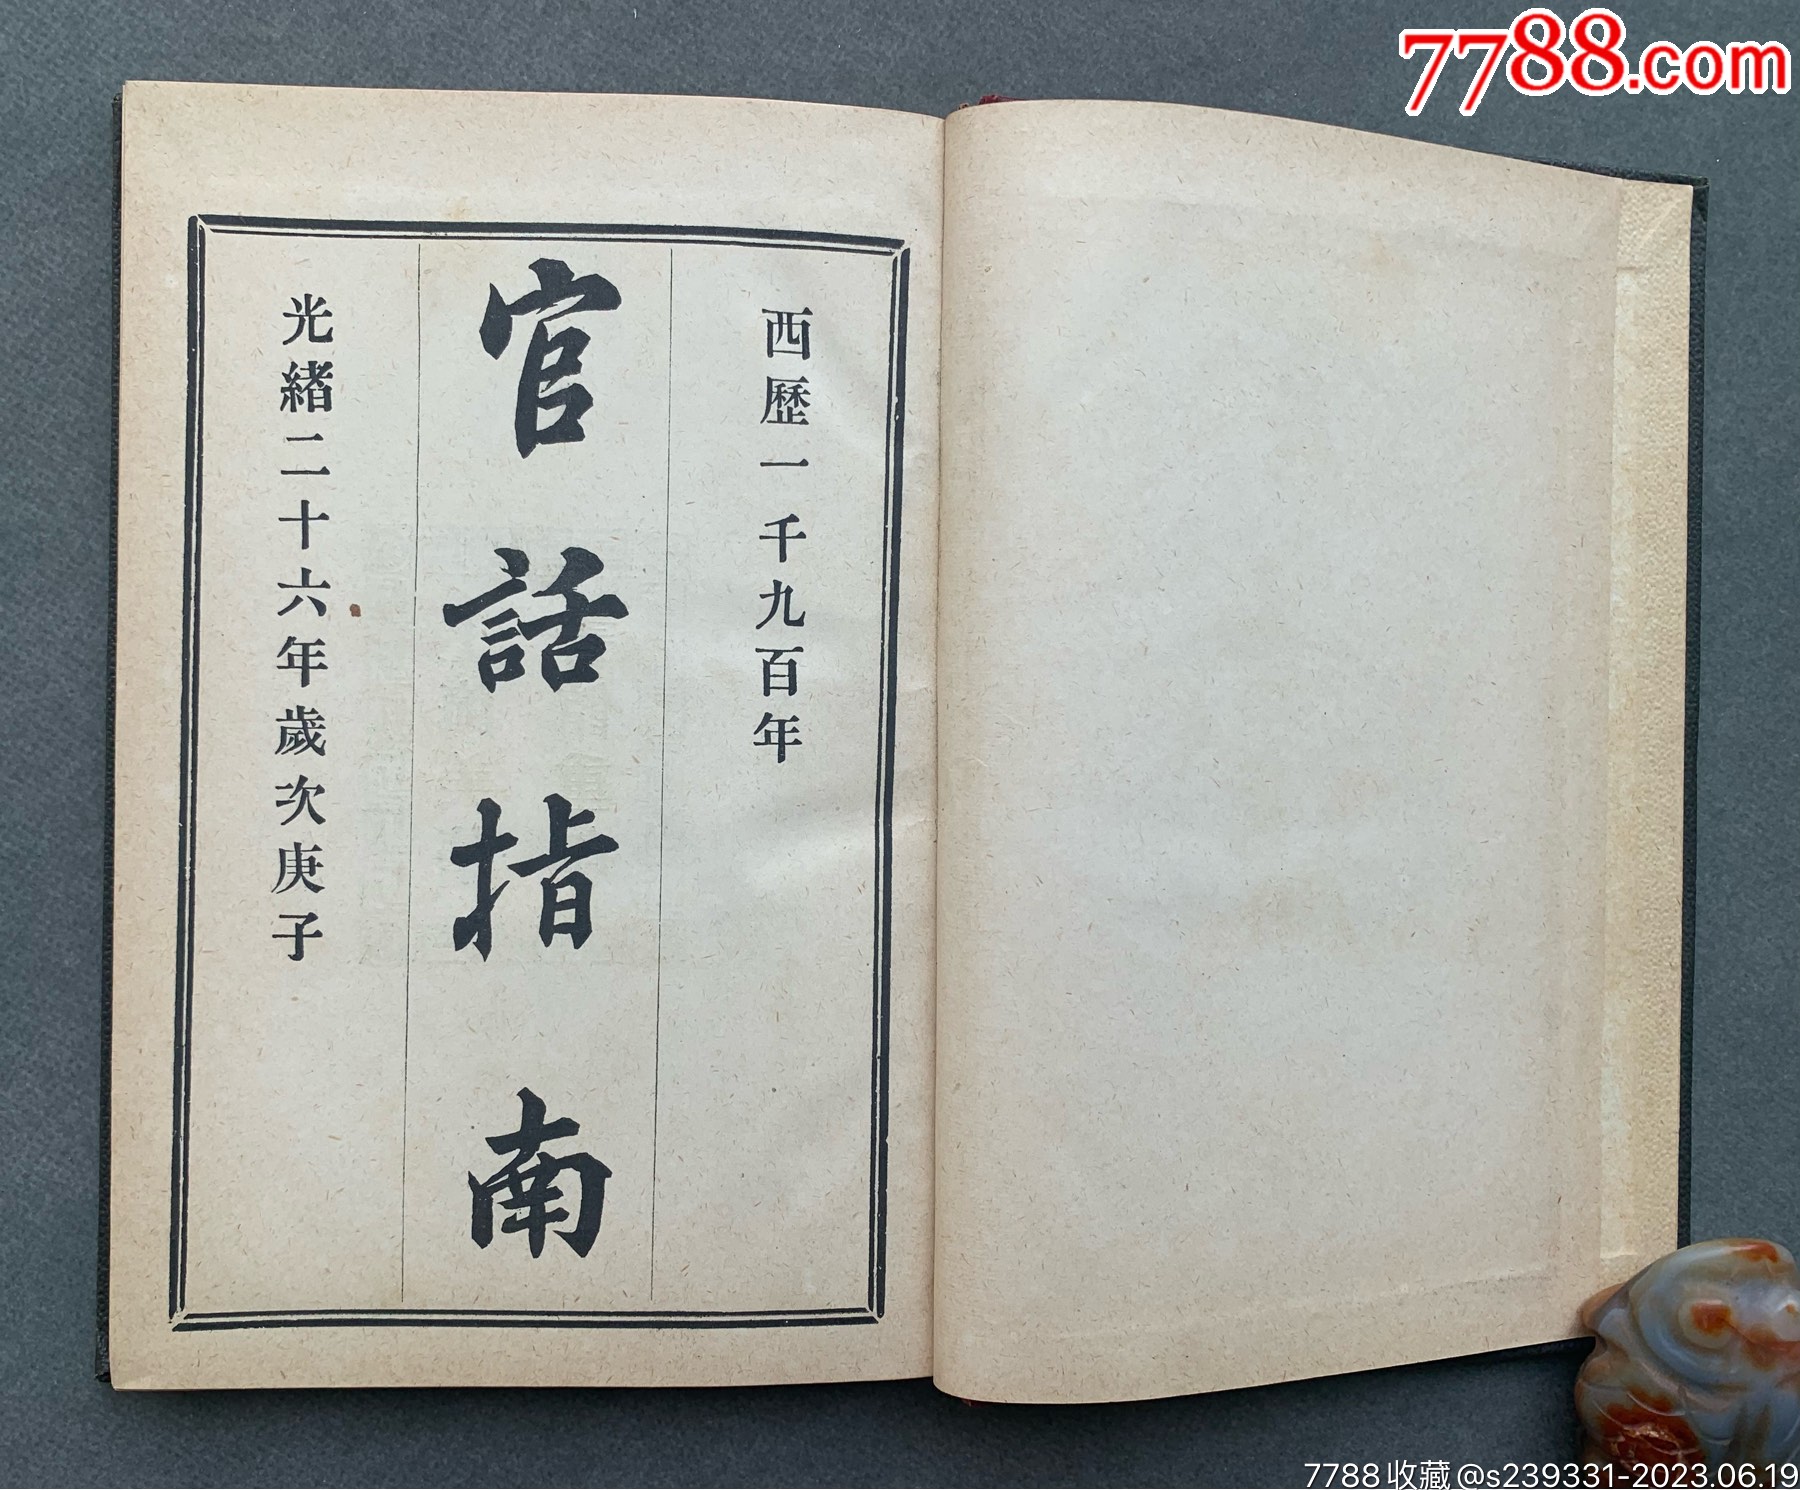 7788.com
西歷一千九百年
官話指南
光緒二十六年歲次庚子
7788收藏@s239331-2023.06.19